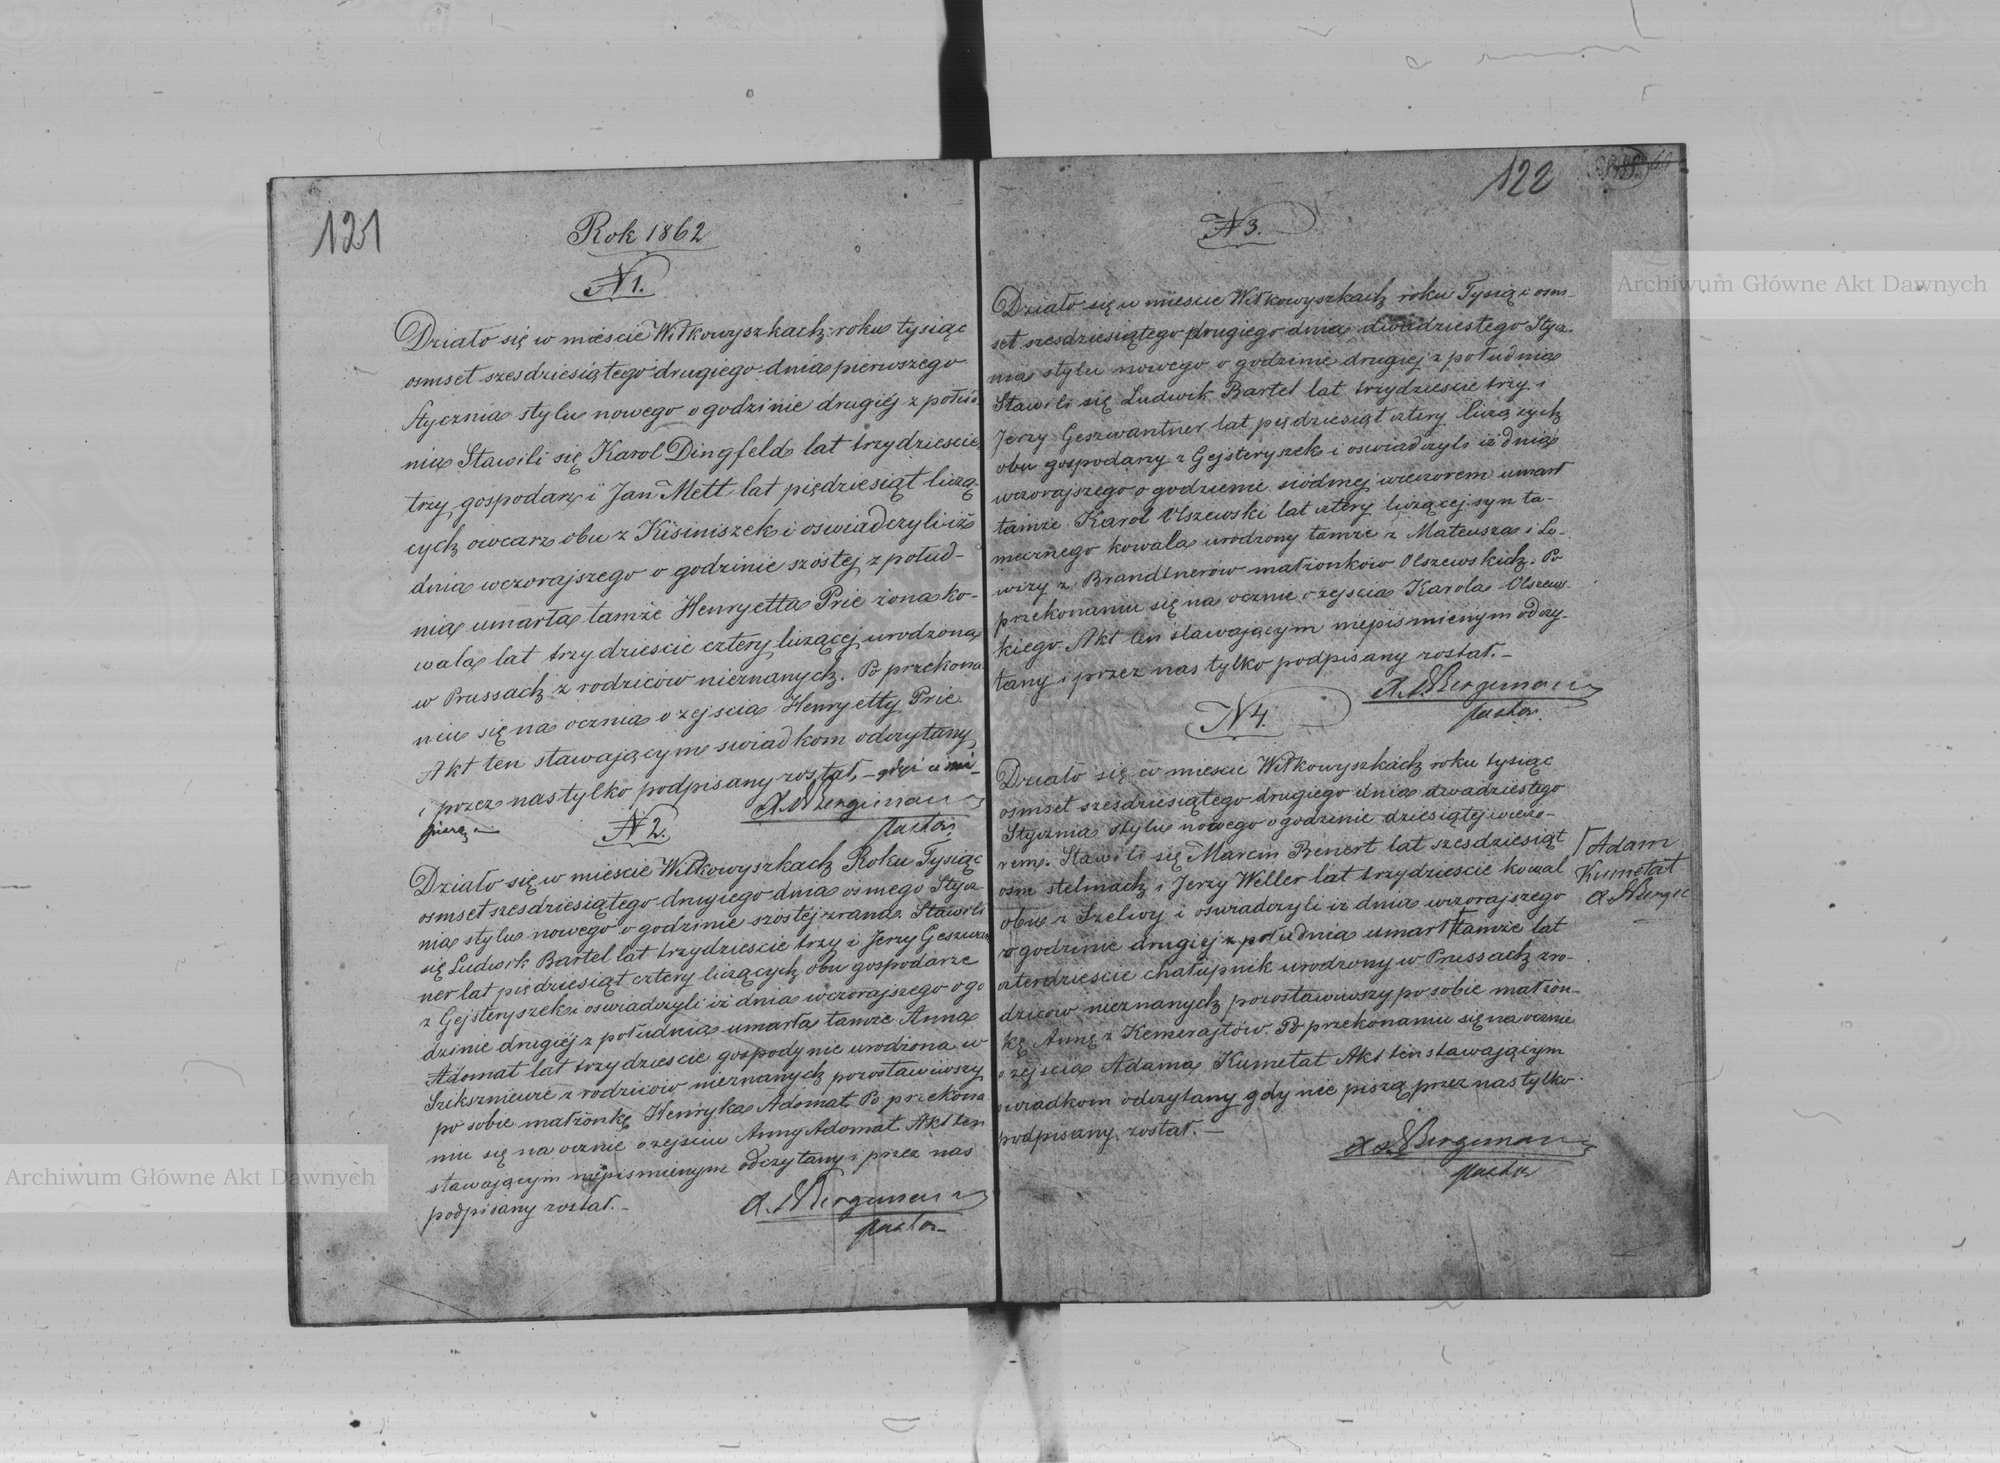 121
Rok 1862
N 1.
Działo się w mieście Wiłkowyszkach roku tysiąc
osmset szesdziesiątego drugiego dnia pierwszego
Stycznia stylu nowego o godzinie drugiéj z połud
nia Stawili się Karol Dingfeld lat trzydzieście
trzy gospodarz i Jan Mett lat piędziesiąt liczą-
cych owcarz obu z Kisiniszek i oswiadczyli iż
dnia wczorajszego o godzinie szóstej z połud-
nia umarła tamże Henryetta Prie żona ko-
wala lat trzydzieście cztery liczącej urodzona
w Prussach z rodziców nieznanych. Po przekona
niu się na ocznia o zejscia Henryetty Prie
Akt ten stawającym swiadkom odczytany
i przez nas tylko podpisany został, - gdyż ci nie
piszą -
A. Bergmann
Pastor.
N 2.
Działo się w miescie Wiłkowyszkach Roku Tysiąc
osmset szesdziesiątego drugiego dnia osmego Stycz
nia stylu nowego o godzinie szóstéj zrana. Stawili
się Ludwik Bartel lat trzydzieście trzy i Jerzy Geszwant
ner lat pięдziesiąt cztery liczących obu gospodarze
z Gejsteryszek i oswiadczyli iż dnia wczorajszego o go
dzinie drugiéj z południa umarła tamże Anna
Adomat lat trzydzieście gospodynie urodzona w
z rodziców nieznanych pozostawiwszy
po sobie małżonkę Henryka Adomat. Po przekona
niu się na ocznie o zejsciu Anny Adomat Akt ten
stawającym niepismienym odczytany i przez nas
podpisany został. -
A. Bergmann
Pastor
122
N 3.
Działo się w miescie Wiłkowyszkach roku Tysiąc osm-
set szesdziesiątego drugiego dnia dwadziestego Stycz-
nia stylu nowego o godzinie drugiej z południa
Stawili się Ludwik Bartel lat trzydzieście trzy i
Jerzy Geszwantner lat pięдziesiąt cztery liczących
obu gospodarzy z Gejsteryszek i oswiadczyli iż dnia
wczorajszego o godzienie siódmej wieczorem umarł
tamże Karol Olszewski lat cztery liczącej syn ta-
mecznego kowala urodzony tamże z Mateusza i Lo-
wizy z Brandtnerów małżonków Olszewskich. Po
przekonaniu się na ocznie o zejscia Karola Olszews-
kiego. Akt ten stawającym niepismienym odczy-
tany i przez nas tylko podpisany został. -
A. Bergmann
Pastor.
N 4.
Działo się w miescie Wiłkowyszkach roku tysiąc
osmset szesdziesiątego drugiego dnia dwadziestego
Stycznia stylu nowego o godzinie dziesiątéj wieczo-
rem. Stawili się Marcin Benert lat szesdziesiąt
osm stelmach i Jerzy Weller lat trzydzieście kowal
obu z Szelwy i oswiadczyli iż dnia wczorajszego
o godzinie drugiej z południa umarł tamże lat
czterdzieście chałupnik urodzony w Prussach z ro-
dziców nieznanych pozostawiwszy po sobie małżon-
kę Annę z Kemerajtów. Po przekonaniu się na ocznie
o zejscia Adama Kumetat Akt ten stawającym
swiadkom odczytany gdy nie piszą przez nas tylko
podpisany został. -
A. Bergmann
Pastor
Adam
Kumetat
A. Bergm
Archiwum Główne Akt Dawnych
Archiwum Główne Akt Dawnych